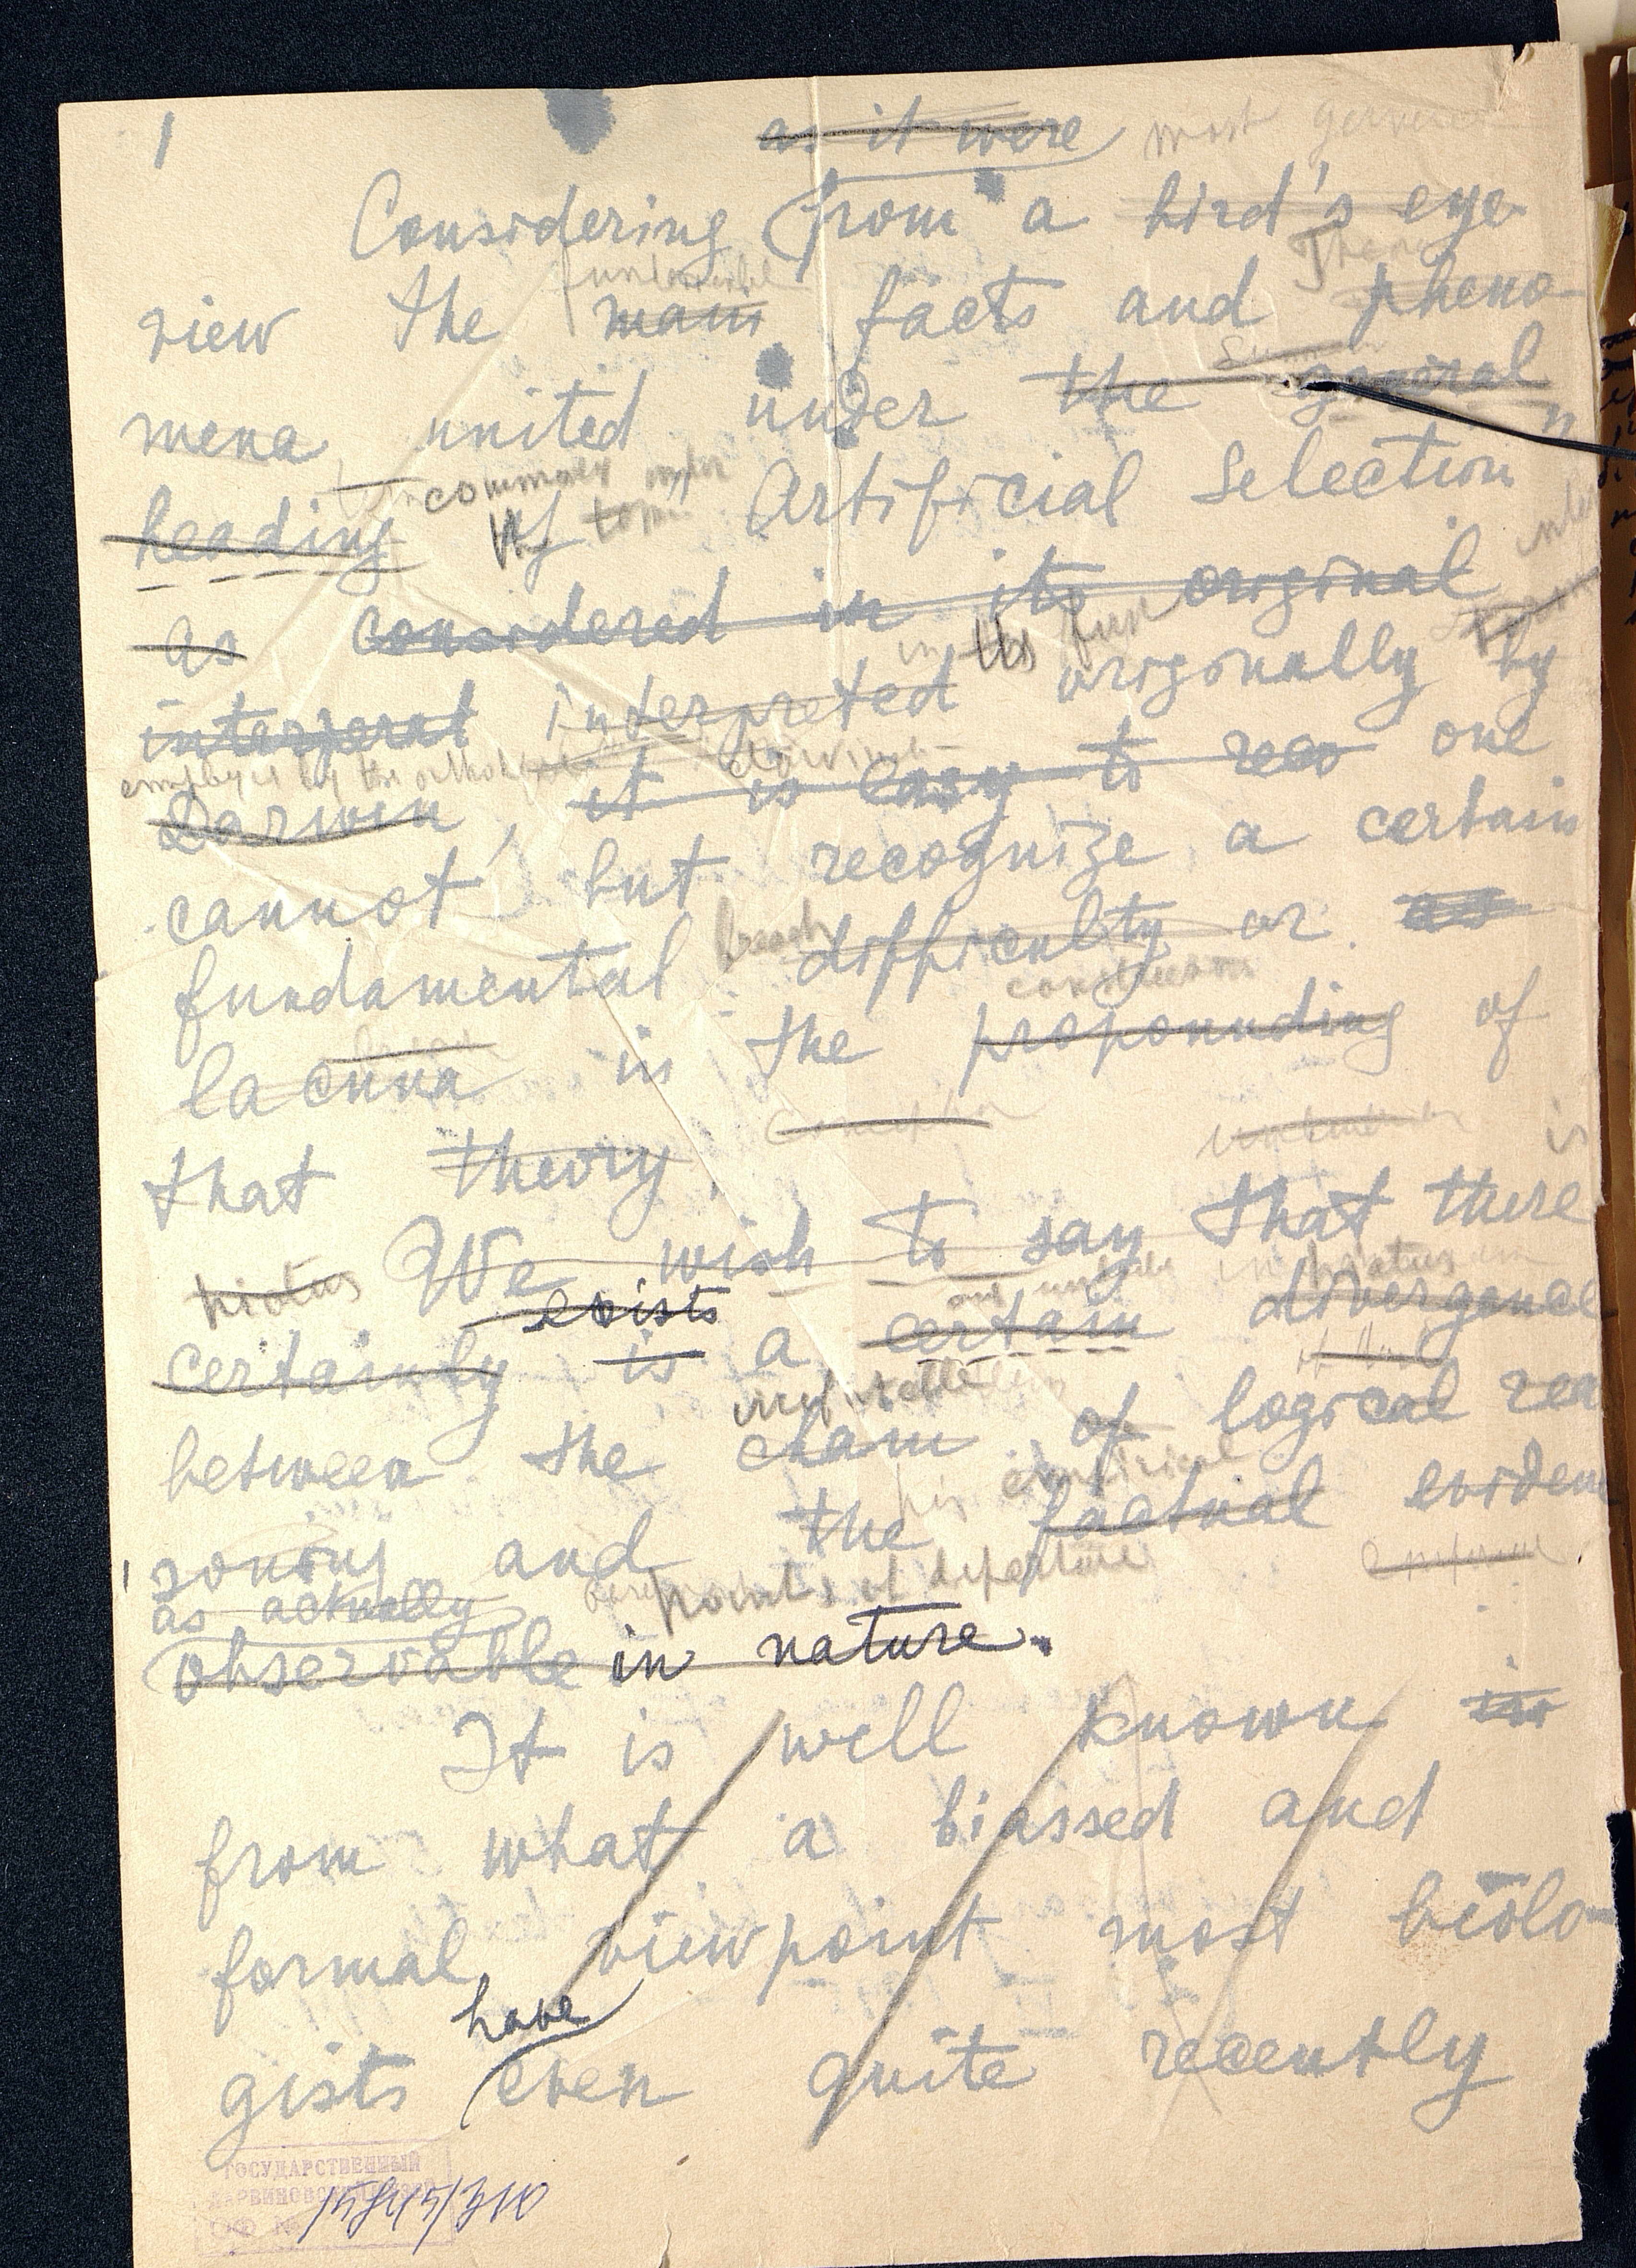 1
as it were most
Considering from a bird's eye
view the main facts and pheno-
mena united under the general
common under
heading of "Artificial Selection
the
as considered in its original
in the
interperat interpreted originally by
employed by the
Darwin, it is easy to rec one
cannot but recognize a certain
breach
fundamental difficulty or as
construction
lacuna in the propounding of
that theory.
is
We wish to say that there
hiatus exists hiatus
certainly is a certain divergence
between the chain of logical rea
his empirical
soning and the factual eviden
as actually points of departure
observable in nature.
It is well known in
from what a biassed and
formal viewpoint most biolo-
have
gists even quite recently
ГОСУДАРСТВЕННЫЙ
ДАРВИНОВСКИЙ МУЗЕЙ
ОФ №